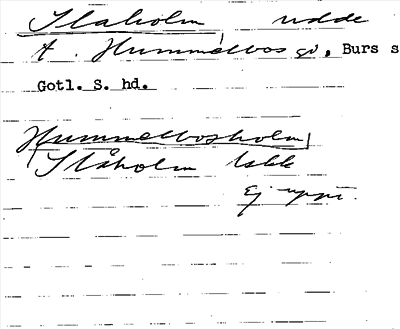 Slåholm udde
t. Hummelbos gd, Burs s
Gotl. S. hd.
Hummelbosholm
(Slåholm lokk
Ej uppt.